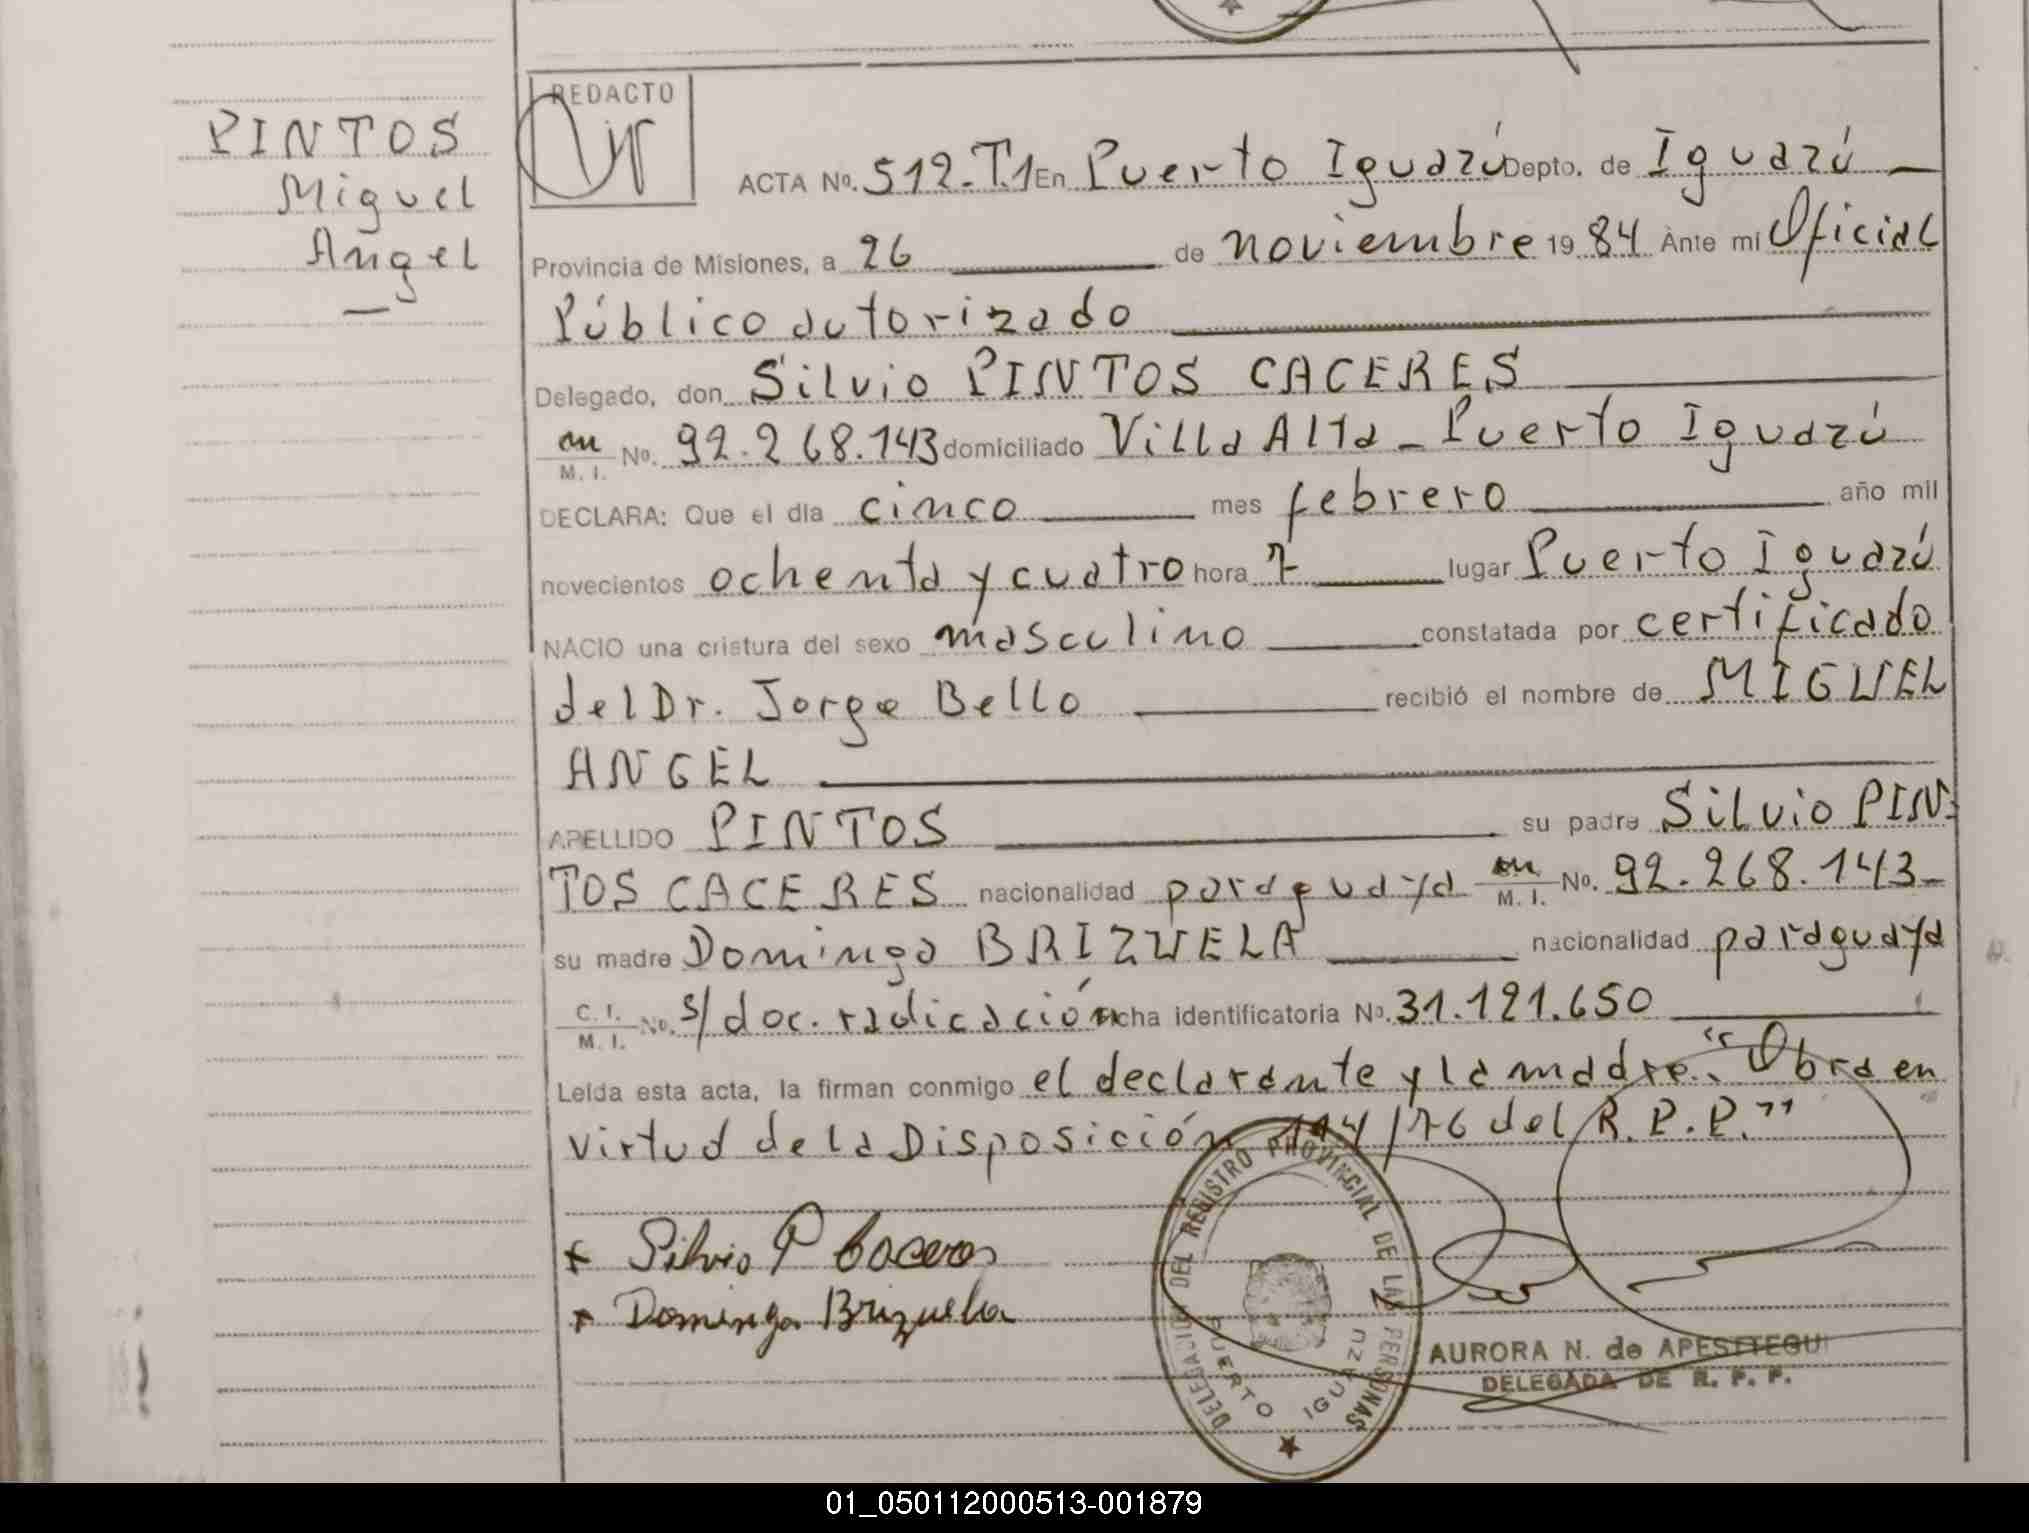 PINTOS
Miguel
Angel
REDACTO
ACTA No. 512.T.1 En Puerto Iguazú Depto. de Iguazú
Provincia de Misiones, a 26 de noviembre 19 84 Ante mi Oficial
Público autorizado
Delegado, don Silvio PINTOS CACERES
M. I. No. 92.268.143 domiciliado Villa Alta - Puerto Iguazú
DECLARA: Que el dia cinco mes febrero año mil
novecientos ochenta y cuatro hora 7 lugar Puerto Iguazú
NACIO una criatura del sexo masculino constatada por certificado
del Dr. Jorge Bello recibió el nombre de MIGUEL
ANGEL
APELLIDO PINTOS su padre Silvio PIN-
TOS CACERES nacionalidad paraguaya M. I. No. 92.268.143-
su madre Dominga BRIZUELA nacionalidad paraguaya
C. I. M. I. No. s/doc. radicación ficha identificatoria No. 31.121.650
Leida esta acta, la firman conmigo el declarante y la madre. "Obra en
virtud de la Disposición 194/76 del R.P.P."
Silvio P Caceres
Dominga Brizuela
DELEGACION DEL REGISTRO PROVINCIAL DE LAS PERSONAS
PUERTO IGUAZU
AURORA N. de APESTEGUI
DELEGADA DE R. P. P.
01_050112000513-001879